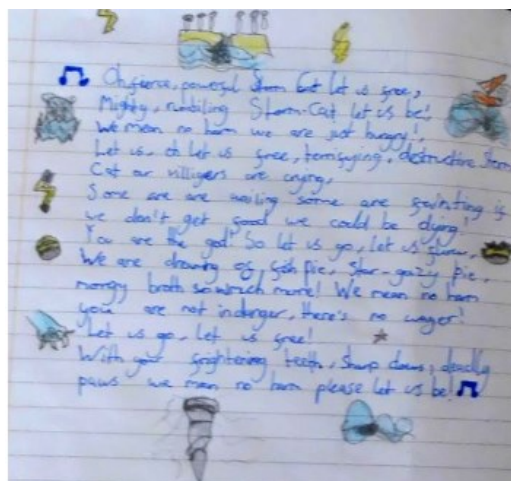 Oh fierce, powerful Storm Cat let us free,
Mighty, rumbiling Storm-Cat let us be!
We mean no harm we are just hungry!,
Let us, oh let us free, terrifying, destructive Storm
Cat our villigers are crying,
Some are are wailing some are fainting if
we don't get food we could be dying!
You are the god! So let us go, let us
We are dreaming of fish pie, star-gazy pie,
morgy broth so much more! We mean no harm
you are not in danger, there's no wager!
Let us go, let us free!
With your frightering teeth, sharp claws, deadly
paws we mean no harm please let us be!